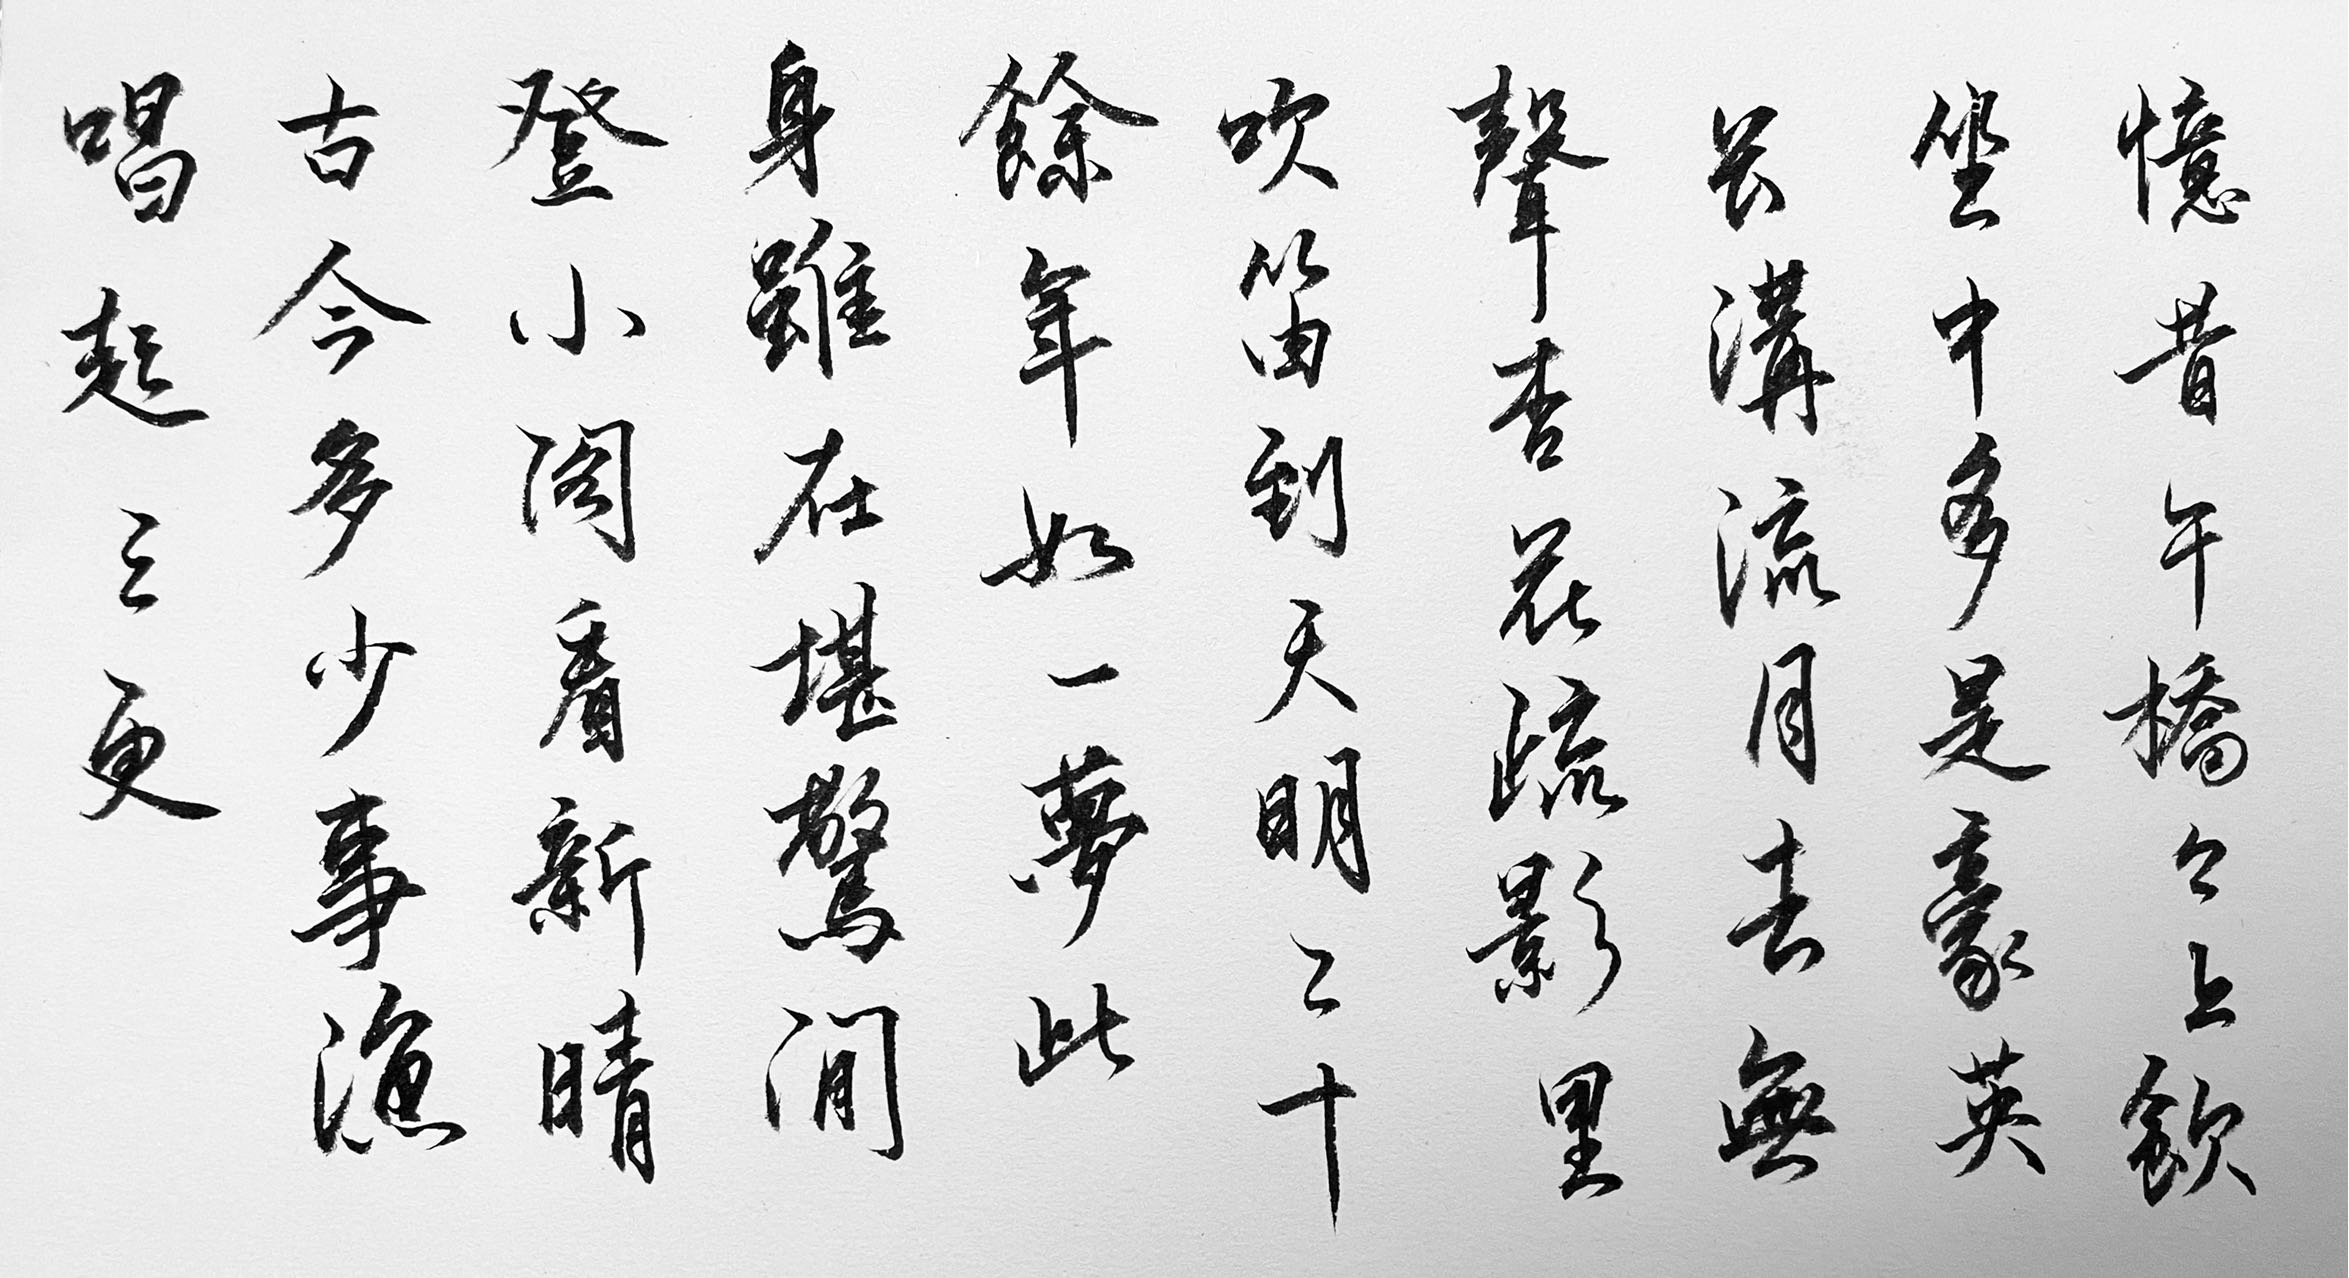 憶昔午橋々上飲
坐中多是豪英
長溝流月去無
聲杏花疏影里
吹笛到天明二十
餘年如一夢此
身雖在堪驚閒
登小閣看新晴
古今多少事漁
唱起三更